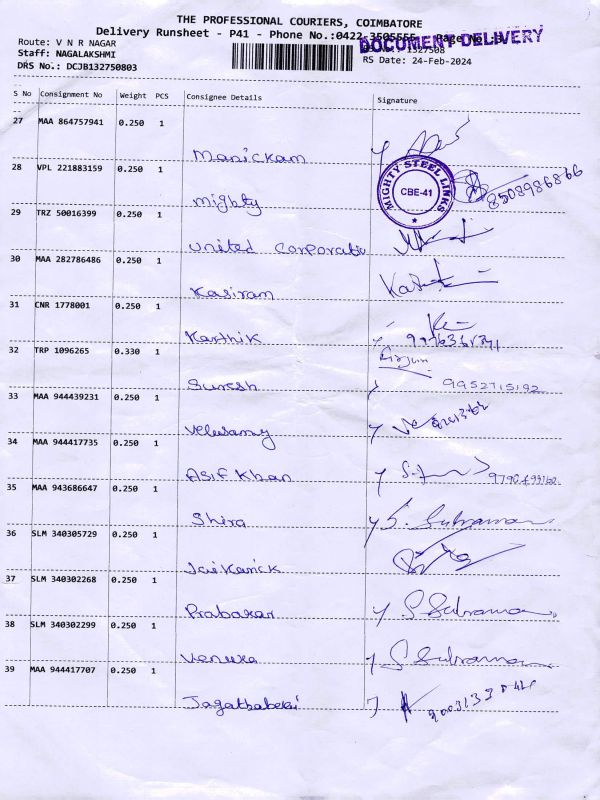 THE PROFESSIONAL COURIERS, COIMBATORE
Delivery Runsheet - P41 - Phone No.:0422-3505555 Page No.:3
DOCUMENT DELIVERY
Route: V N R NAGAR
Staff: NAGALAKSHMI
DRS No.: DCJB132750803
RS No.: 1327508
RS Date: 24-Feb-2024
S No Consignment No Weight PCS Consignee Details Signature
27 MAA 864757941 0.250 1
Manickam
28 VPL 221883159 0.250 1
Mighty
MIGHTY STEEL LINKS
CBE-41
8508986866
29 TRZ 50016399 0.250 1
United Corporatio
30 MAA 282786486 0.250 1
Kasiram
31 CNR 1778001 0.250 1
Karthik
32 TRP 1096265 0.330 1
Suresh
9952715192
33 MAA 944439231 0.250 1
Velusamy
34 MAA 944417735 0.250 1
Asif Khan
35 MAA 943686647 0.250 1
Shira S. Subraman
36 SLM 340305729 0.250 1
Jai Karick
37 SLM 340302268 0.250 1
Prabakar S Subraman
38 SLM 340302299 0.250 1
Venuka S Subraman
39 MAA 944417707 0.250 1